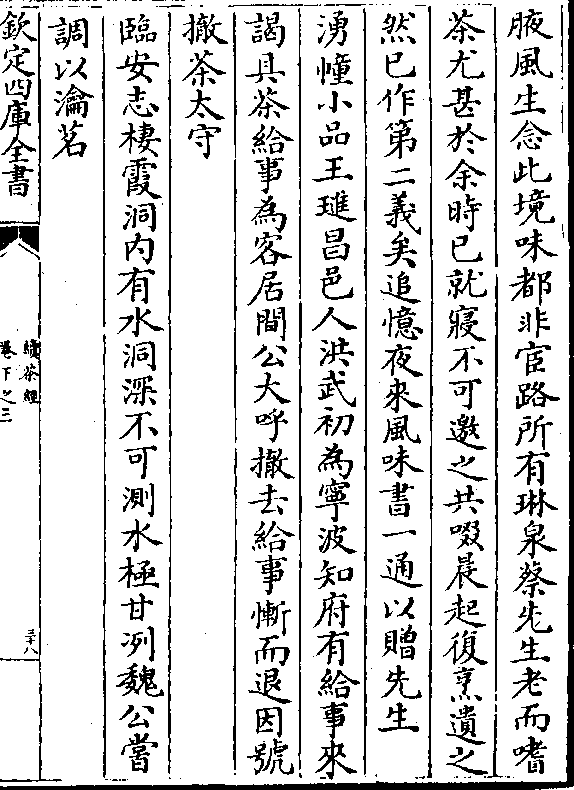 腋風生念此境味都非宦路所有琳泉蔡先生老而嗜
茶尤甚於余時已就寢不可邀之共啜晨起復烹遺之
然已作第二義矣追憶夜來風味書一通以贈先生
湧幢小品王璡昌邑人洪武初為寧波知府有給事來
謁具茶給事為客居間公大呼撤去給事慚而退因號
撤茶太守
臨安志棲霞洞内有水洞深不可測水極甘冽魏公嘗
調以瀹茗
欽定四庫全書
續茶經
卷下之三
三十八